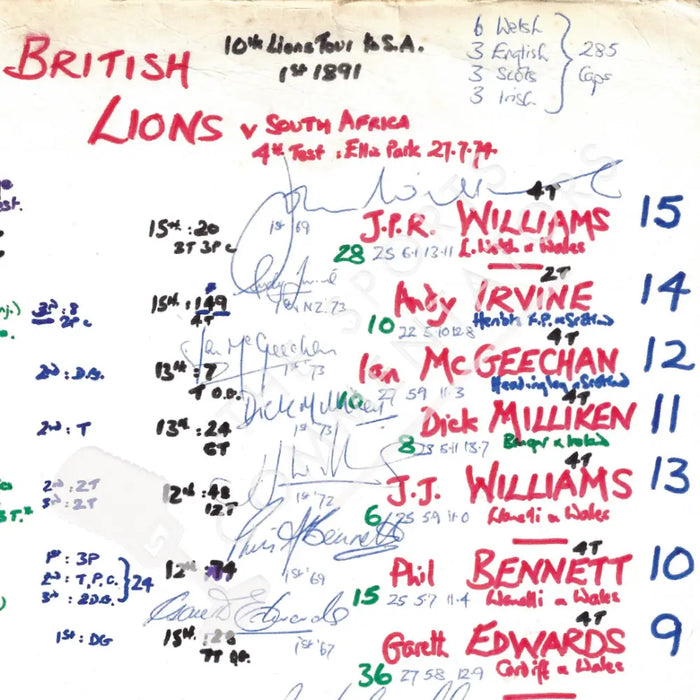 10th Lions Tour to S.A.
1st 1891
6 Welsh
3 English
3 Scots
3 Irish
285
Caps
BRITISH
LIONS v SOUTH AFRICA
4th Test : Ellis Park 27.7.74.
4T
15th : 20
1st '69
J.P.R. WILLIAMS 15
28 25 6·1 13·11 L. Welsh & Wales
2T
15th : 149
4T
1st N.Z. '73
Andy IRVINE 14
10 22 5·10 12·8 Heriots F.P. & Scotland
3rd : 8
4T
2nd : D.G.
13th : 7
Ian McGeechan
'73
Ian McGEECHAN 12
10 27 5 9 11·3 Headingley & Scotland
4T
2nd : T
13th : 24
6T
Dick Milliken
1st '73
Dick MILLIKEN 11
8 23 5·11 13·7 Bangor & Ireland
4T
2nd : 2T
3rd : 2T
12th : 48
12T
1st '72
J.J. WILLIAMS 13
6 25 5 9 11·0 Llanelli & Wales
4T
1st : 3P
2nd : T, P, C.
3rd : 2 D.G.
24
12th : 74
Phil Bennett
1st '69
Phil BENNETT 10
15 25 5·7 11·4 Llanelli & Wales
4T
1st : DG
15th : 28
7T DG.
Gareth Edwards
1st '67
Gareth EDWARDS 9
36 27 5 8 12·9 Cardiff & Wales